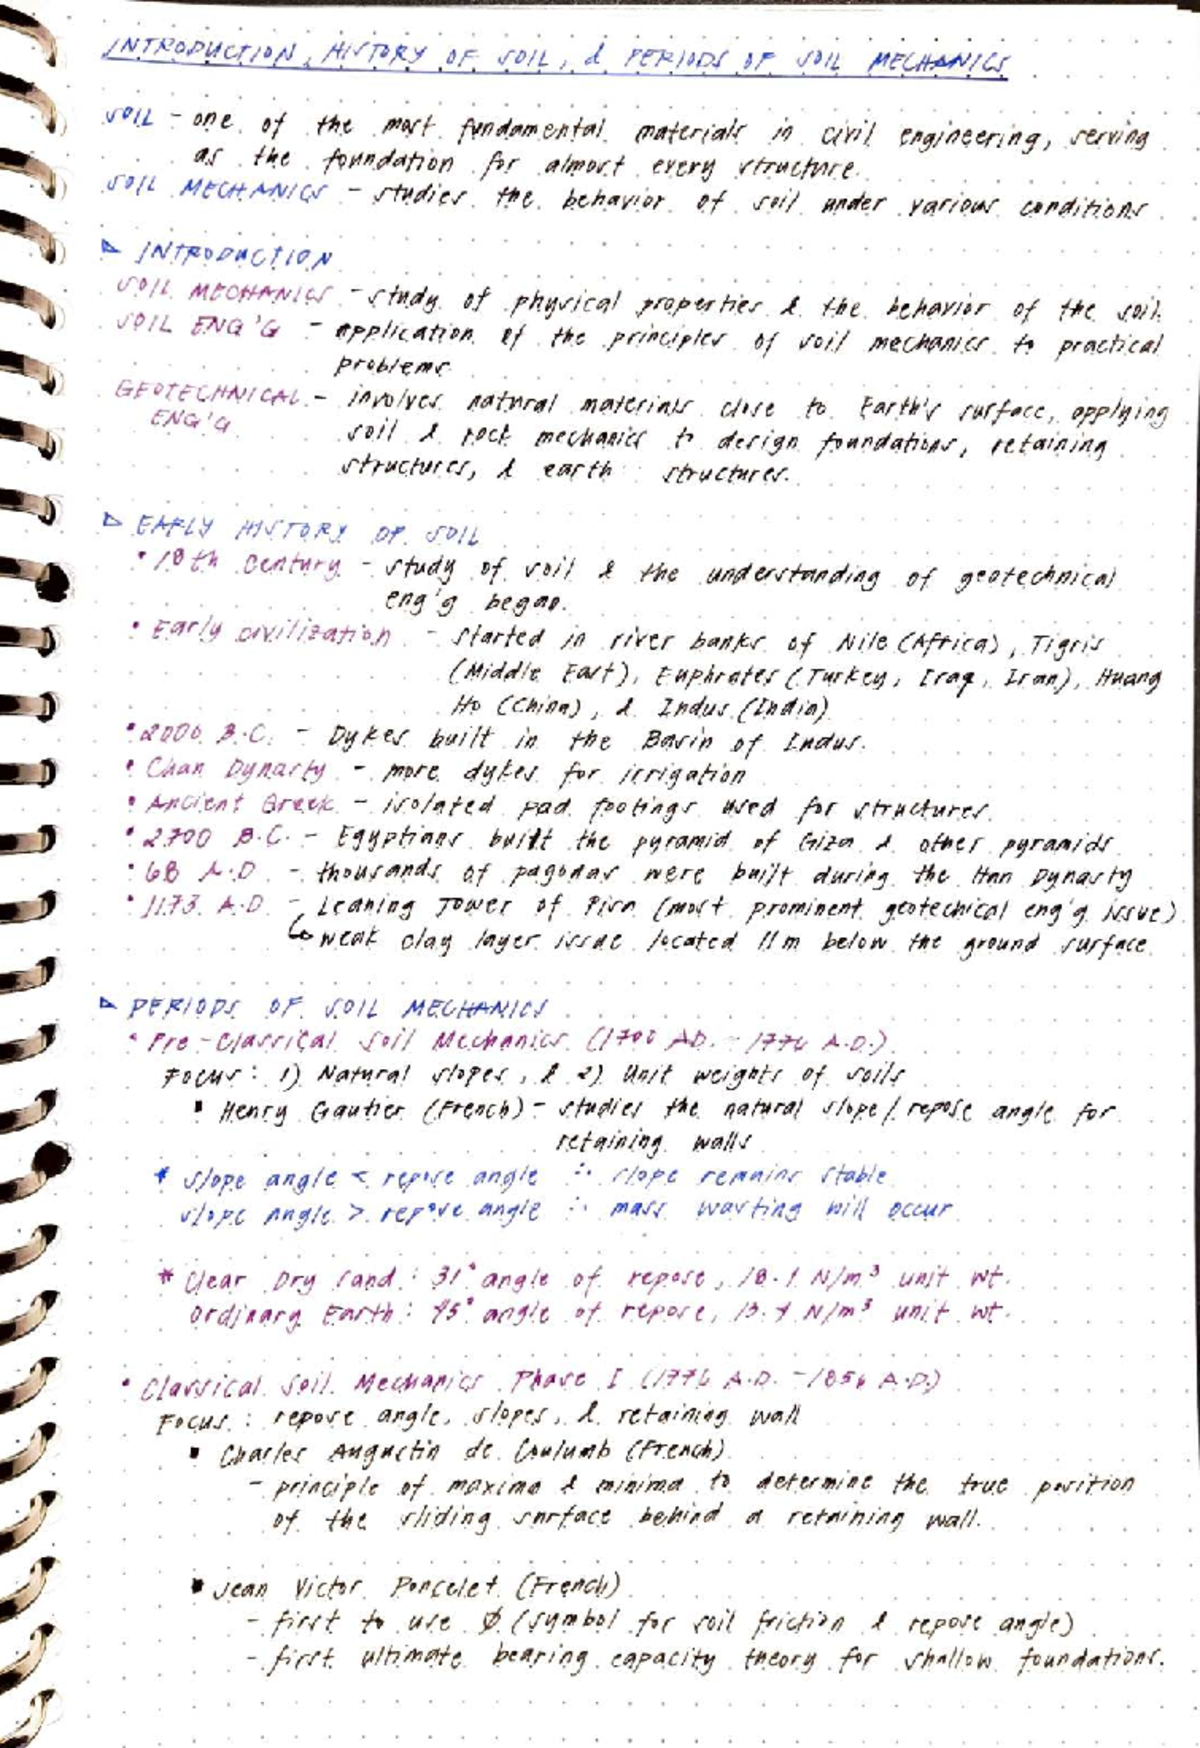 INTRODUCTION, HISTORY OF SOIL, & PERIODS OF SOIL MECHANICS
SOIL - one of the most fundamental materials in civil engineering, serving
as the foundation for almost every structure.
SOIL MECHANICS - studies the behavior of soil under various conditions
▷ INTRODUCTION
SOIL MECHANICS - study of physical properties & the behavior of the soil.
SOIL ENG'G - application of the principles of soil mechanics to practical
problems
GEOTECHNICAL - involves natural materials close to Earth's surface, applying
ENG'G soil & rock mechanics to design foundations, retaining
structures, & earth structures.
▷ EARLY HISTORY OF SOIL
• 18th Century - study of soil & the understanding of geotechnical
eng'g began.
• Early civilization - started in river banks of Nile (Africa), Tigris
(Middle East), Euphrates (Turkey, Iraq, Iran), Huang
Ho (China), & Indus (India)
• 2000 B.C. - Dykes built in the Basin of Indus.
• Chan Dynasty - more dykes for irrigation
• Ancient Greek - isolated pad footings used for structures.
• 2700 B.C. - Egyptians built the pyramid of Giza & other pyramids
• 68 A.D - thousands of pagodas were built during the Han Dynasty
• 1173 A.D - Leaning Tower of Pisa (most prominent geotechical eng'g issue)
↳ weak clay layer issue located 11m below the ground surface
▷ PERIODS OF SOIL MECHANICS
• Pre-Classical Soil Mechanics (1700 AD. - 1776 A.D.)
Focus: 1) Natural slopes, & 2) Unit weights of soils
▪ Henry Gautier (French) - studies the natural slope / repose angle for
retaining walls
* slope angle < repose angle ∴ slope remains stable
slope angle > repose angle ∴ mass wasting will occur
* Clear Dry Sand: 31° angle of repose, 18.1 N/m³ unit wt.
Ordinary Earth: 45° angle of repose, 13.4 N/m³ unit wt.
• Classical Soil Mechanics Phase I (1776 A.D. - 1856 A.D.)
Focus: repose angle, slopes, & retaining wall
▪ Charles Augustin de Coulumb (French)
- principle of maxima & minima to determine the true position
of the sliding surface behind a retaining wall.
▪ Jean Victor Poncelet (French)
- first to use ∅ (symbol for soil friction & repose angle)
- first ultimate bearing capacity theory for shallow foundations.